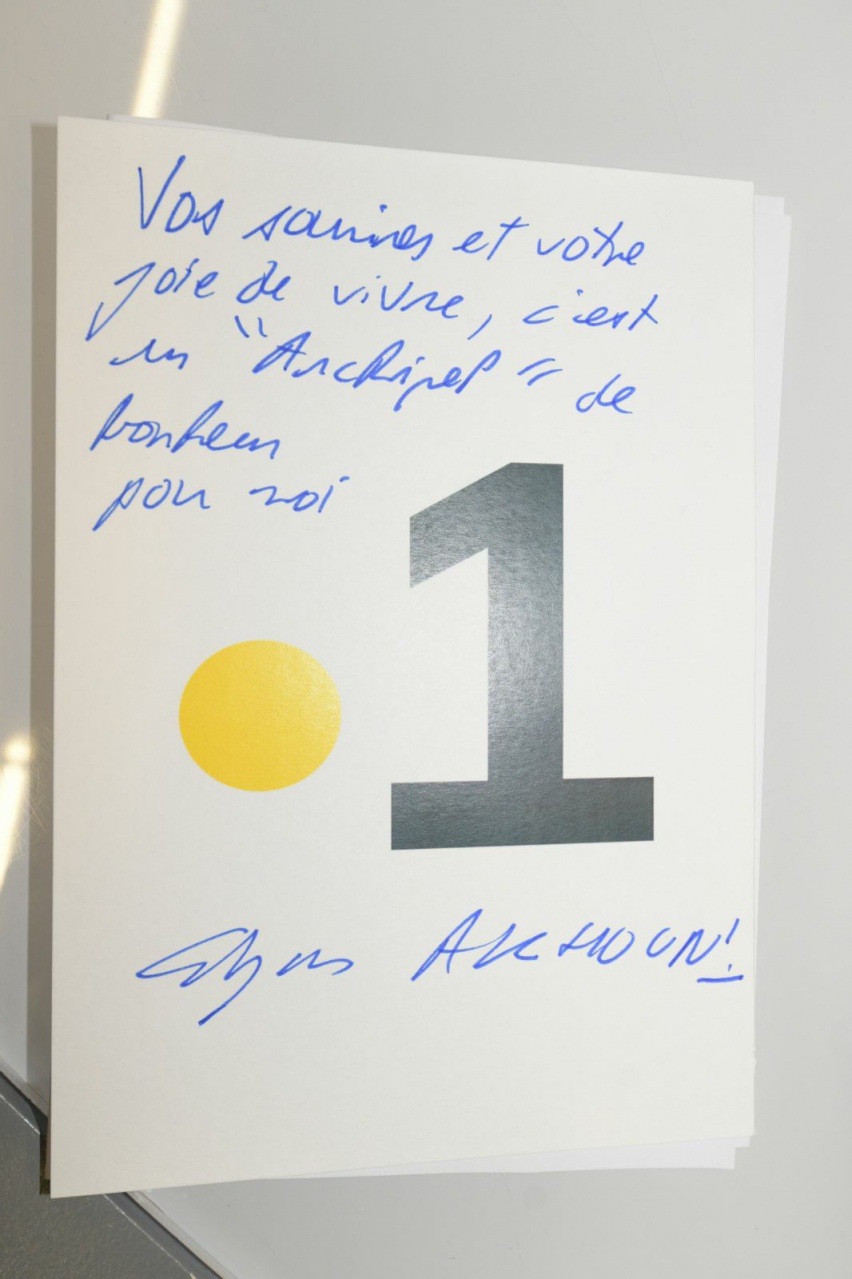 Vos sourires et votre
joie de vivre, c'est
un "Archipel" de
bonheur
pour moi
.1
AKHOUN!